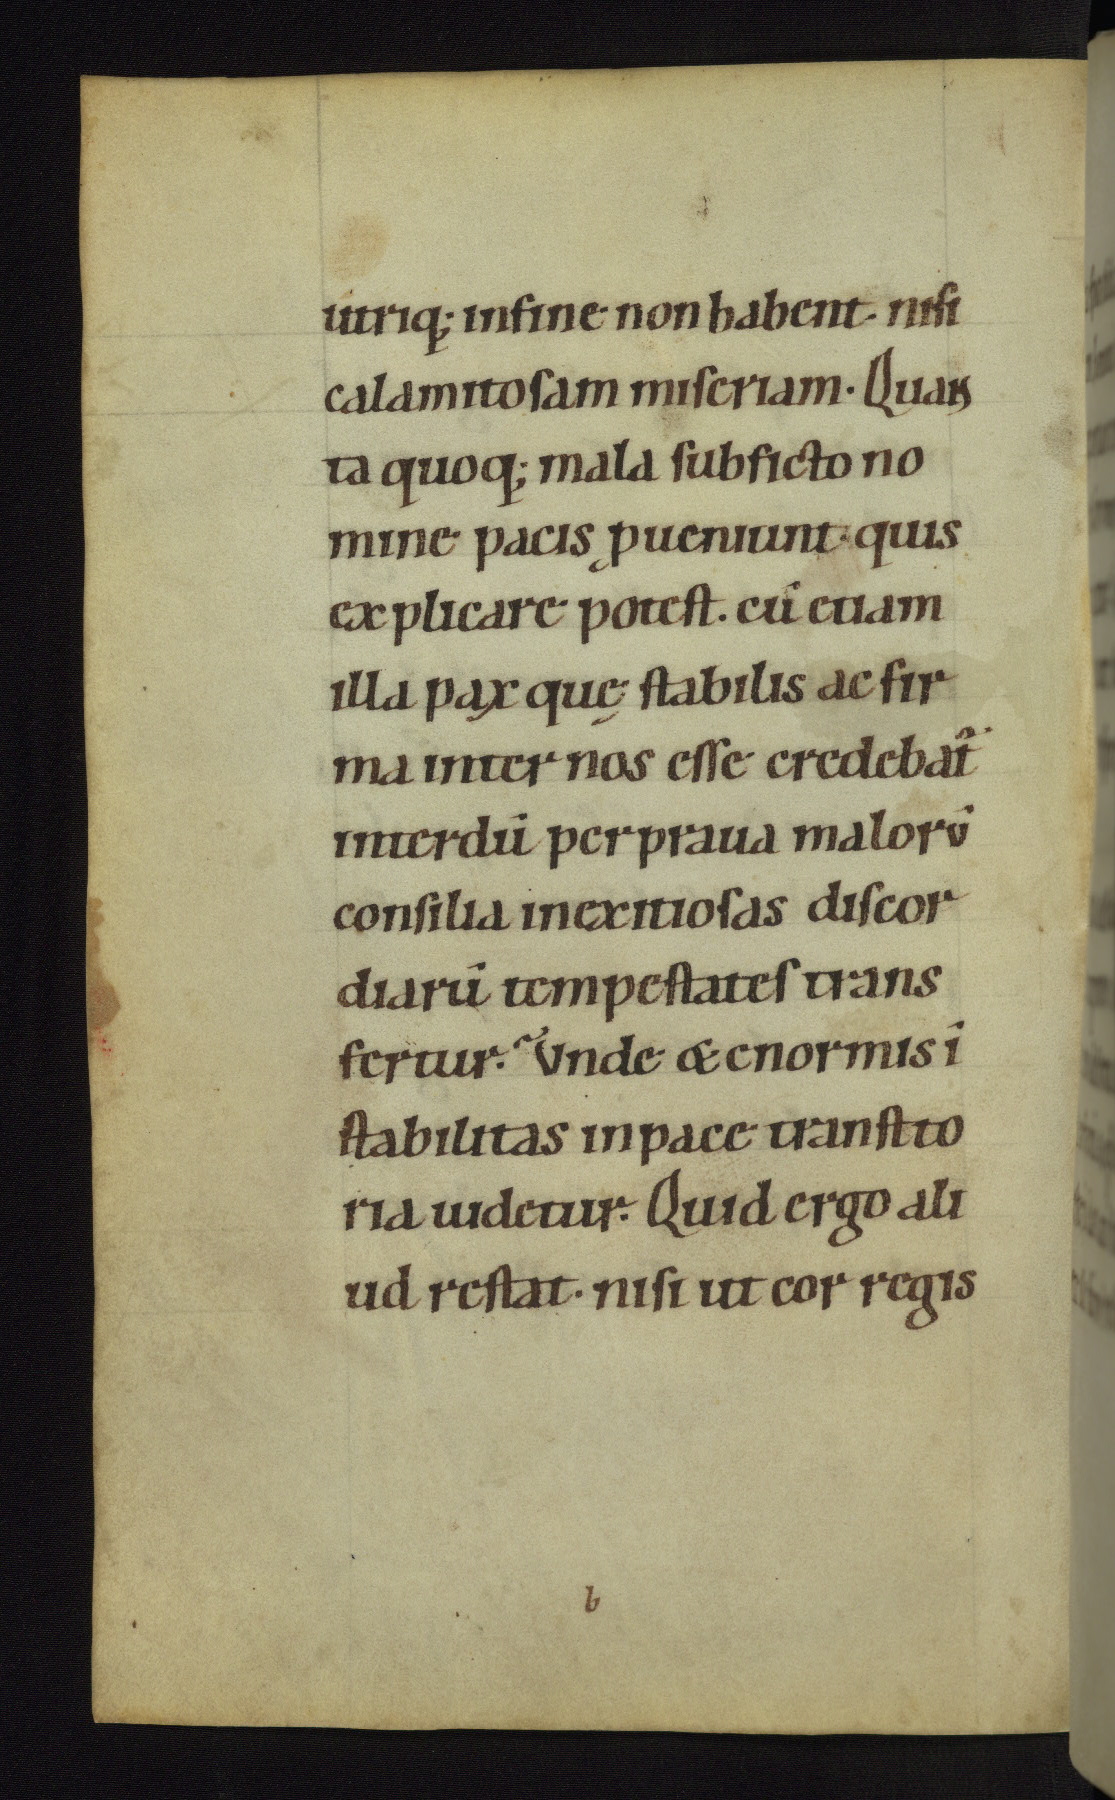 utriq; infine non habent. nisi
calamitosam miseriam. Quan
ta quoq; mala sub ficto no
mine pacis ꝓueniunt. quis
explicare potest. cū etiam
illa pax quę stabilis ac fir
ma inter nos esse credebat᷑
interdū per praua malorū
consilia in exitiosas discor
diarū tempestates trans
fertur. Vnde & enormis ī
stabilitas in pace transito
ria uidetur. Quid ergo ali
ud restat. nisi ut cor regis
b